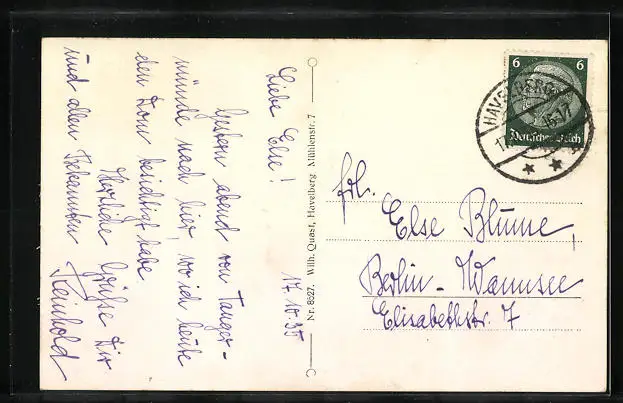 17.10.35
Liebe Else!
Gestern abend von Tanger-
münde nach hier, wo ich heute
den Dom besichtigt habe.
Herzliche Grüße Dir
und allen Bekannten
Reinhold
Nr. 8527. Wilh. Quast, Havelberg Mühlenstr. 7
6 6
Deutsches Reich
HAVELBERG
Frl.
Else Blume,
Berlin-Wannsee
Elisabethstr. 7